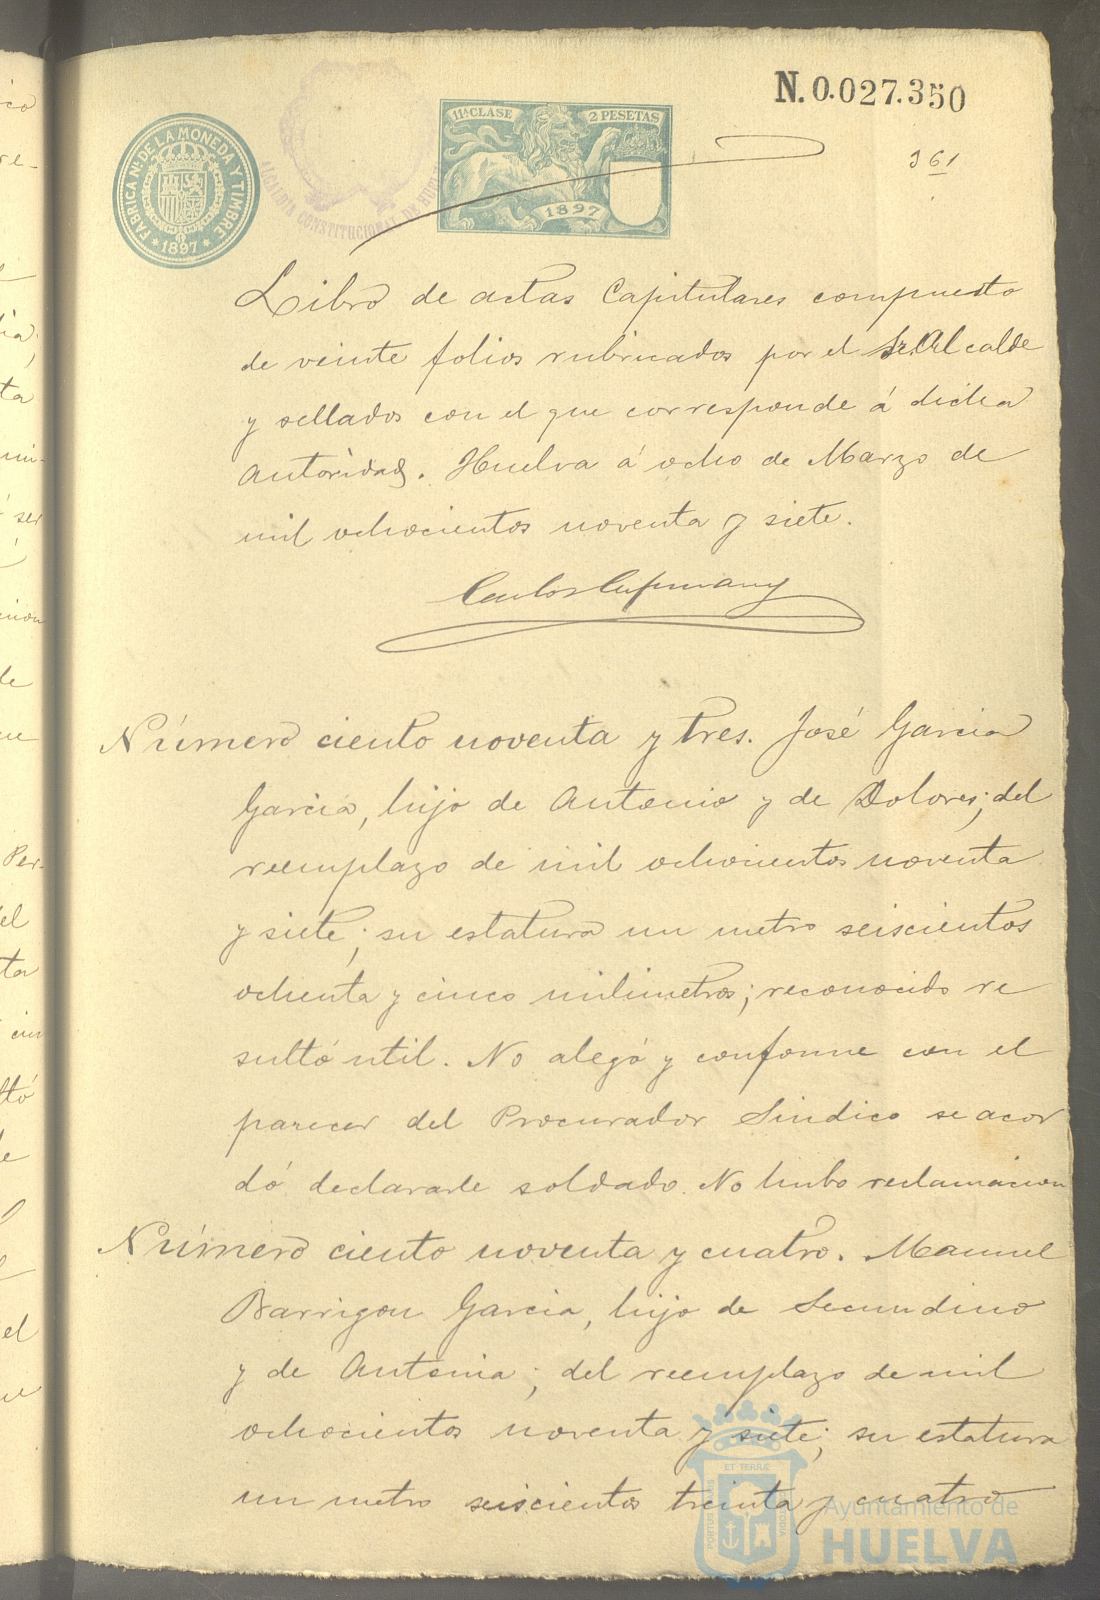 N. 0.027.350
11ª CLASE 2 PESETAS
1897
FABRICA NAL DE LA MONEDA Y TIMBRE
* 1897 *
ALCALDIA CONSTITUCIONAL DE HUELVA
361
Libro de actas Capitulares compuesto
de veinte folios rubricados por el Sr. Alcalde
y sellados con el que corresponde á dicha
autoridad. Huelva á ocho de Marzo de
mil ochocientos noventa y siete.
Número ciento noventa y tres. José Garcia
Garcia, hijo de Antonio y de Dolores; del
reemplazo de mil ochocientos noventa
y siete; su estatura un metro seiscientos
ochenta y cinco milimetros; reconocido re
sultó util. No alegó y conforme con el
parecer del Procurador Sindico se acor
dó declararle soldado. No hubo reclamacion
Número ciento noventa y cuatro. Manuel
Barrigon Garcia, hijo de Secundino
y de Antonia; del reemplazo de mil
ochocientos noventa y siete; su estatura
un metro seiscientos treinta y cuatro
Ayuntamiento de
HUELVA